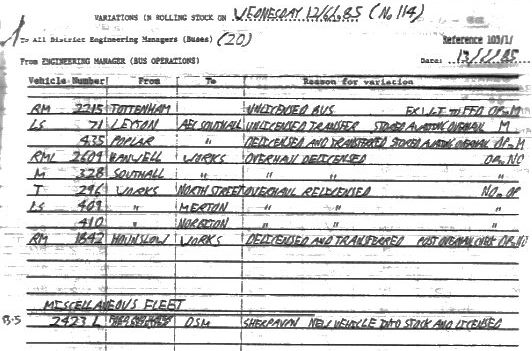 VARIATIONS IN ROLLING STOCK ON WEDNESDAY 12/6/85 (No 114)
To All District Engineering Managers (Buses) (20) Reference 103/1/
From ENGINEERING MANAGER (BUS OPERATIONS) Date:
Vehicle Number From To Reason for variation
RM 2215 TOTTENHAM UNLICENSED BUS EX L.T. to FFD OP. M
LS 71 LEYTON AEC SOUTHALL UNLICENSED TRANSFER STORED AWAITING OVERHAUL M
435 POPLAR " DELICENSED AND TRANSFERRED STORED AWAITING OVERHAUL OP. M
RML 2609 HANWELL WORKS OVERHAUL DELICENSED OP. NO
M 328 SOUTHALL " " "
T 296 WORKS NORTH STREET OVERHAUL RELICENSED NO. OP
LS 409 " MERTON " " "
410 " NORBITON " " "
RM 1842 HOUNSLOW WORKS DELICENSED AND TRANSFERRED POST OVERHAUL CHECK OP. NO
MISCELLANEOUS FLEET
B-5 2423 L DSM SHERPAVAN NEW VEHICLE INTO STOCK AND LICENSED